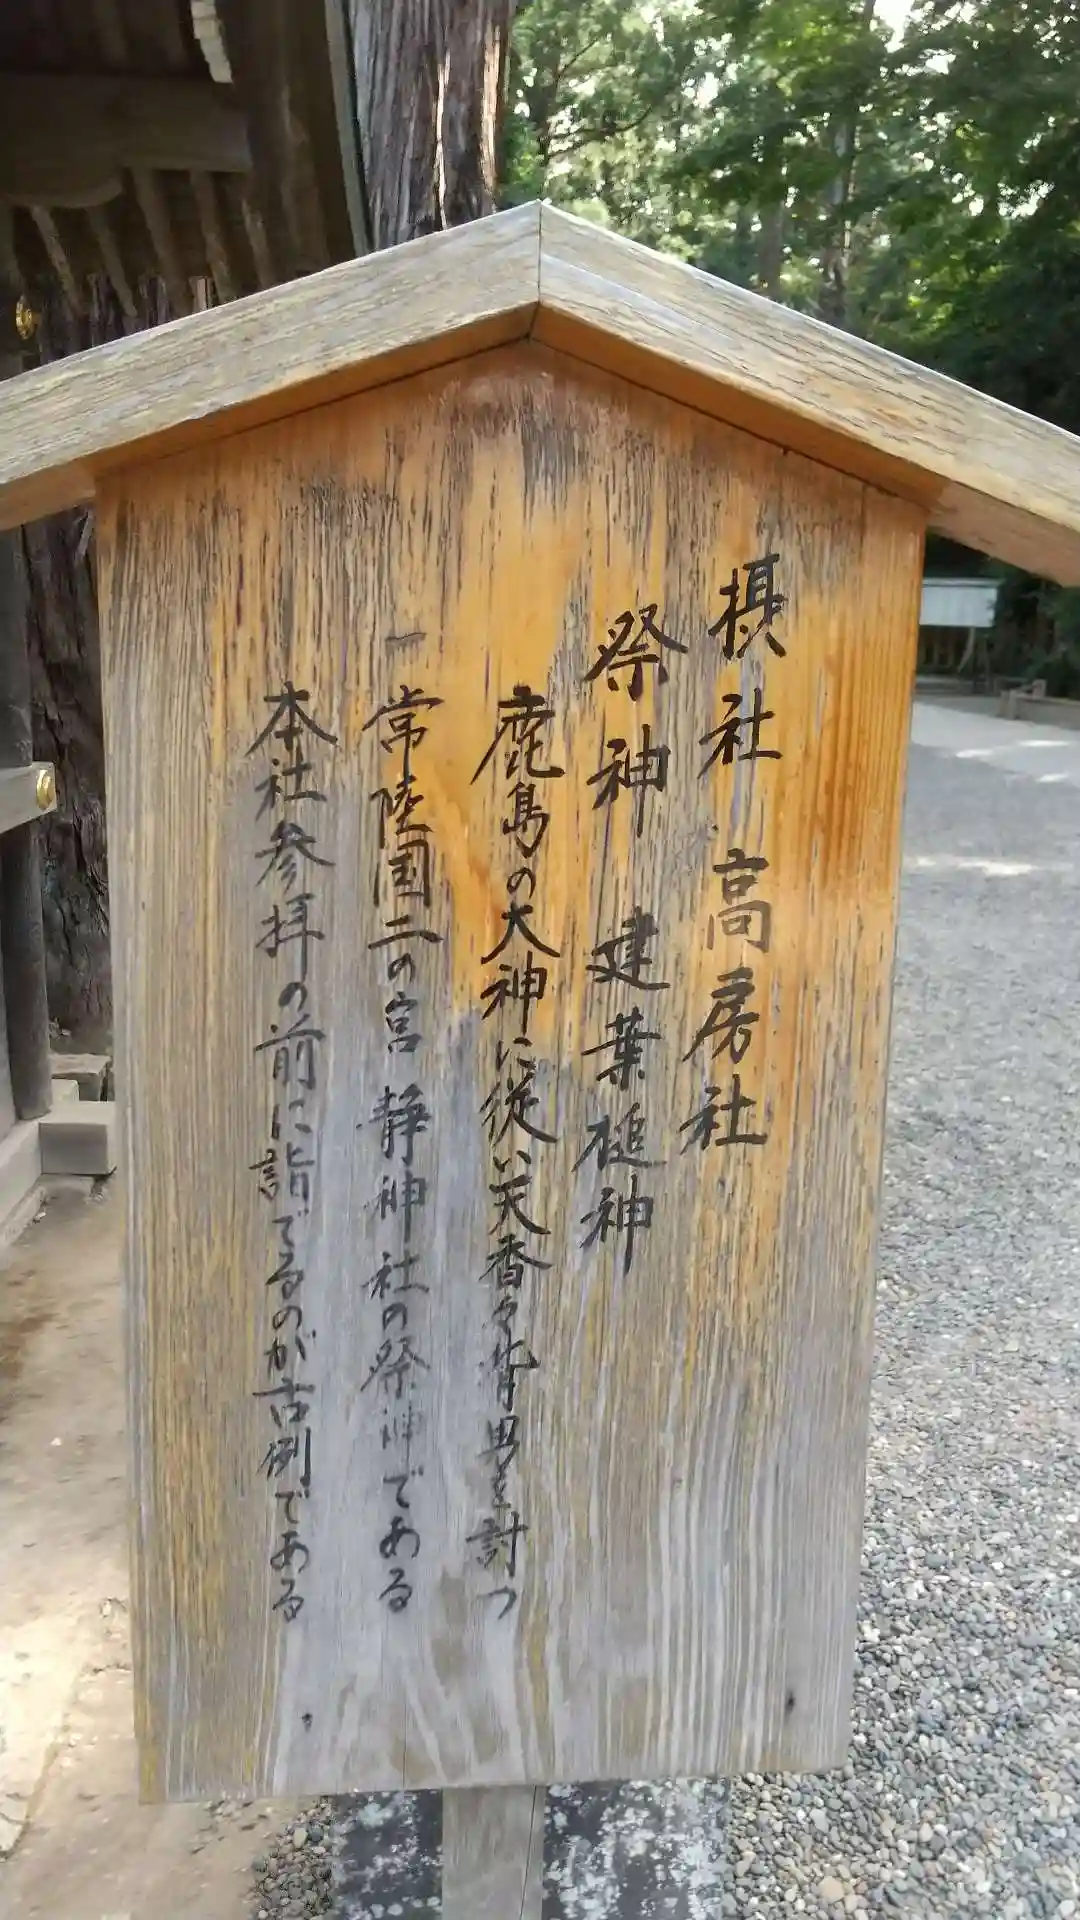 摂社 高房社
祭神 建葉槌神
鹿島の大神に従い天香々背男を討つ
一常陸国二の宮 静神社の祭神である
本社参拝の前に詣でるのが古例である